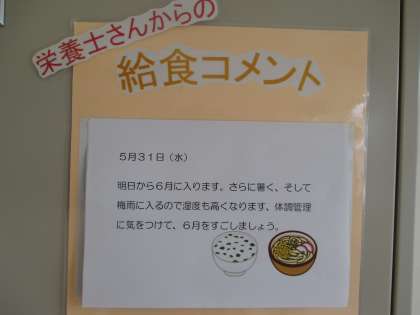 栄養士さんからの
給食コメント
５月３１日（水）
明日から６月に入ります。さらに暑く、そして
梅雨に入るので湿度も高くなります、体調管理
に気をつけて、６月をすごしましょう。